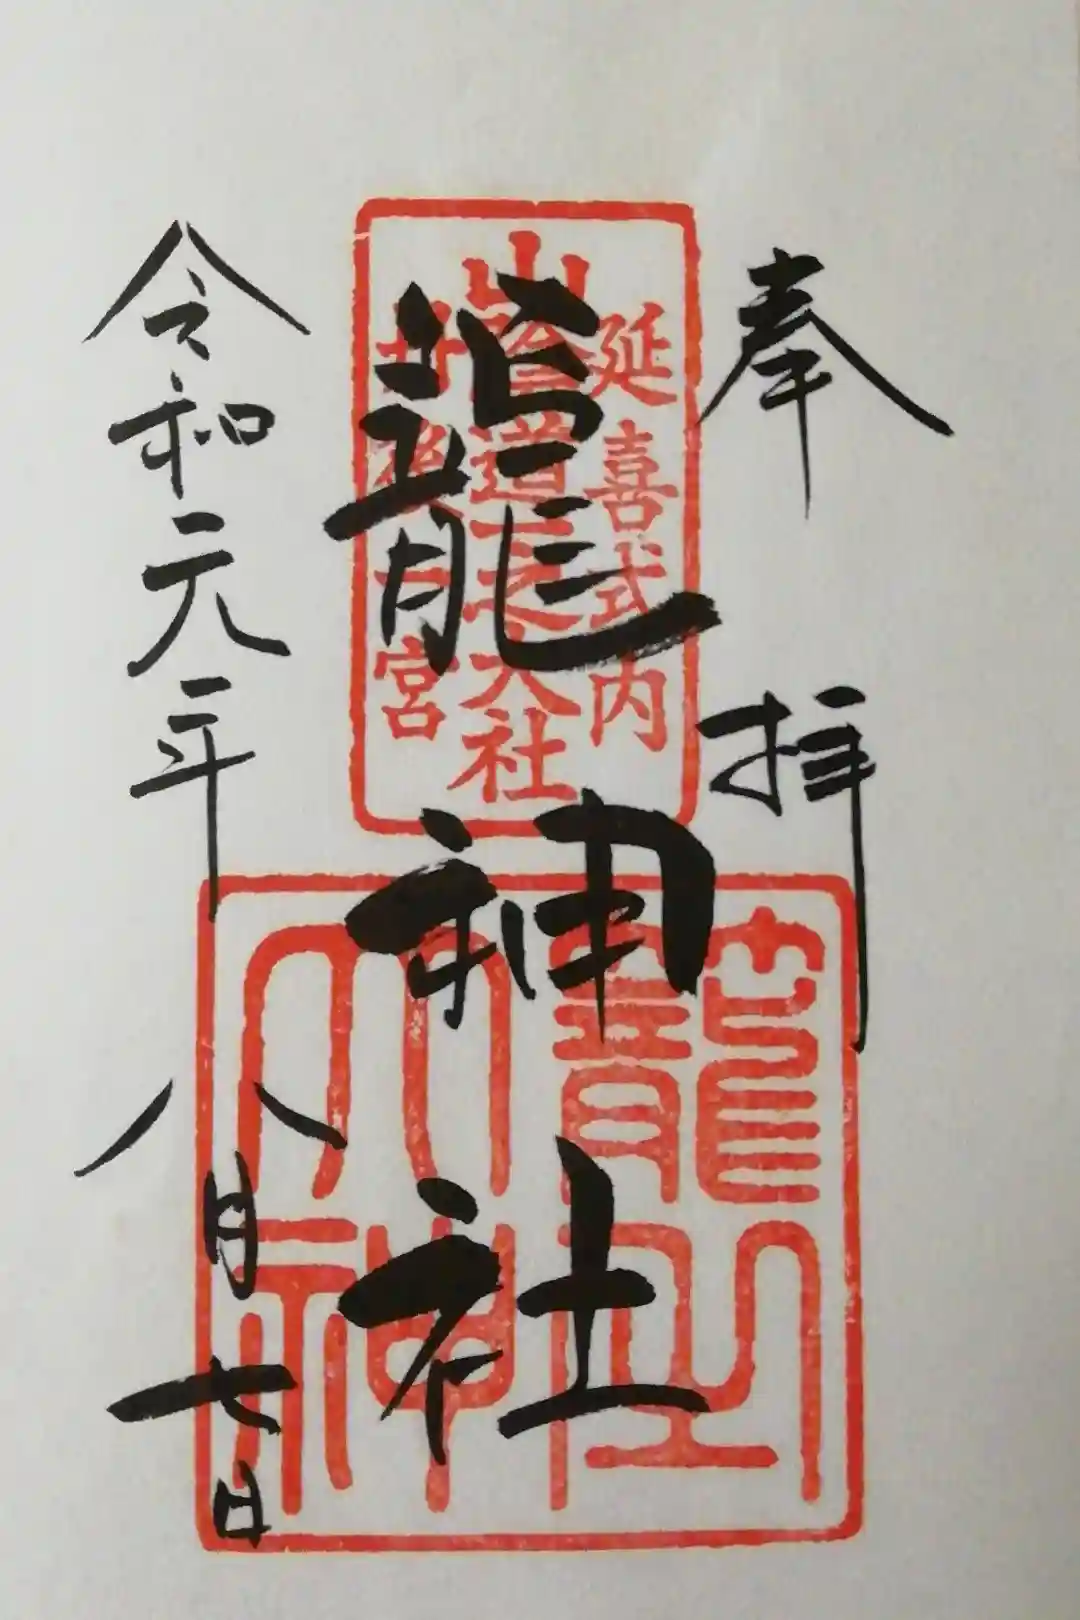 奉拝
延喜式内
山陰道之大社
丹後一宮
籠神社
籠之大神
令和元年八月七日